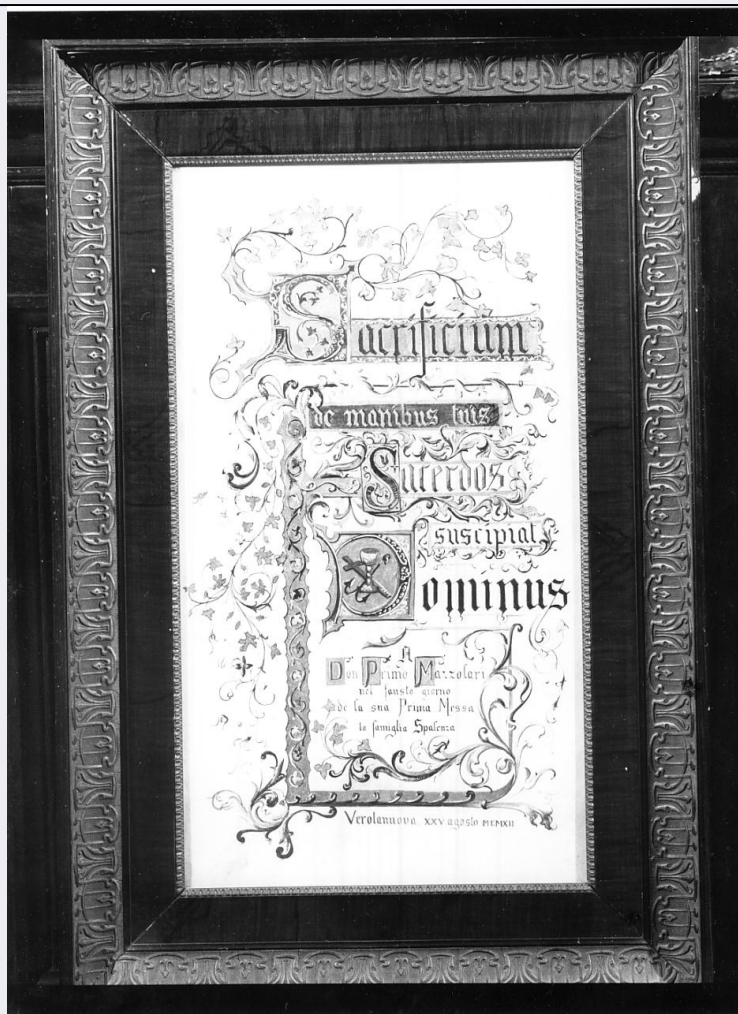 Sacrificium
de manibus tuis
Sacerdos
suscipiat
Dominus
A
Don Primo Mazzolari
nel fausto giorno
de la sua Prima Messa
la famiglia Spalenza
Verolanuova XXV agosto MCMXII